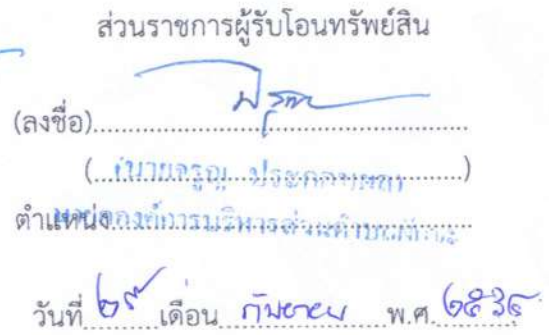 ส่วนราชการผู้รับโอนทรัพย์สิน
(ลงชื่อ)
(นายจรูญ)
ตำแหน่ง นายกองค์การบริหารส่วนตำบล
วันที่ ๒๙ เดือน กันยายน พ.ศ.